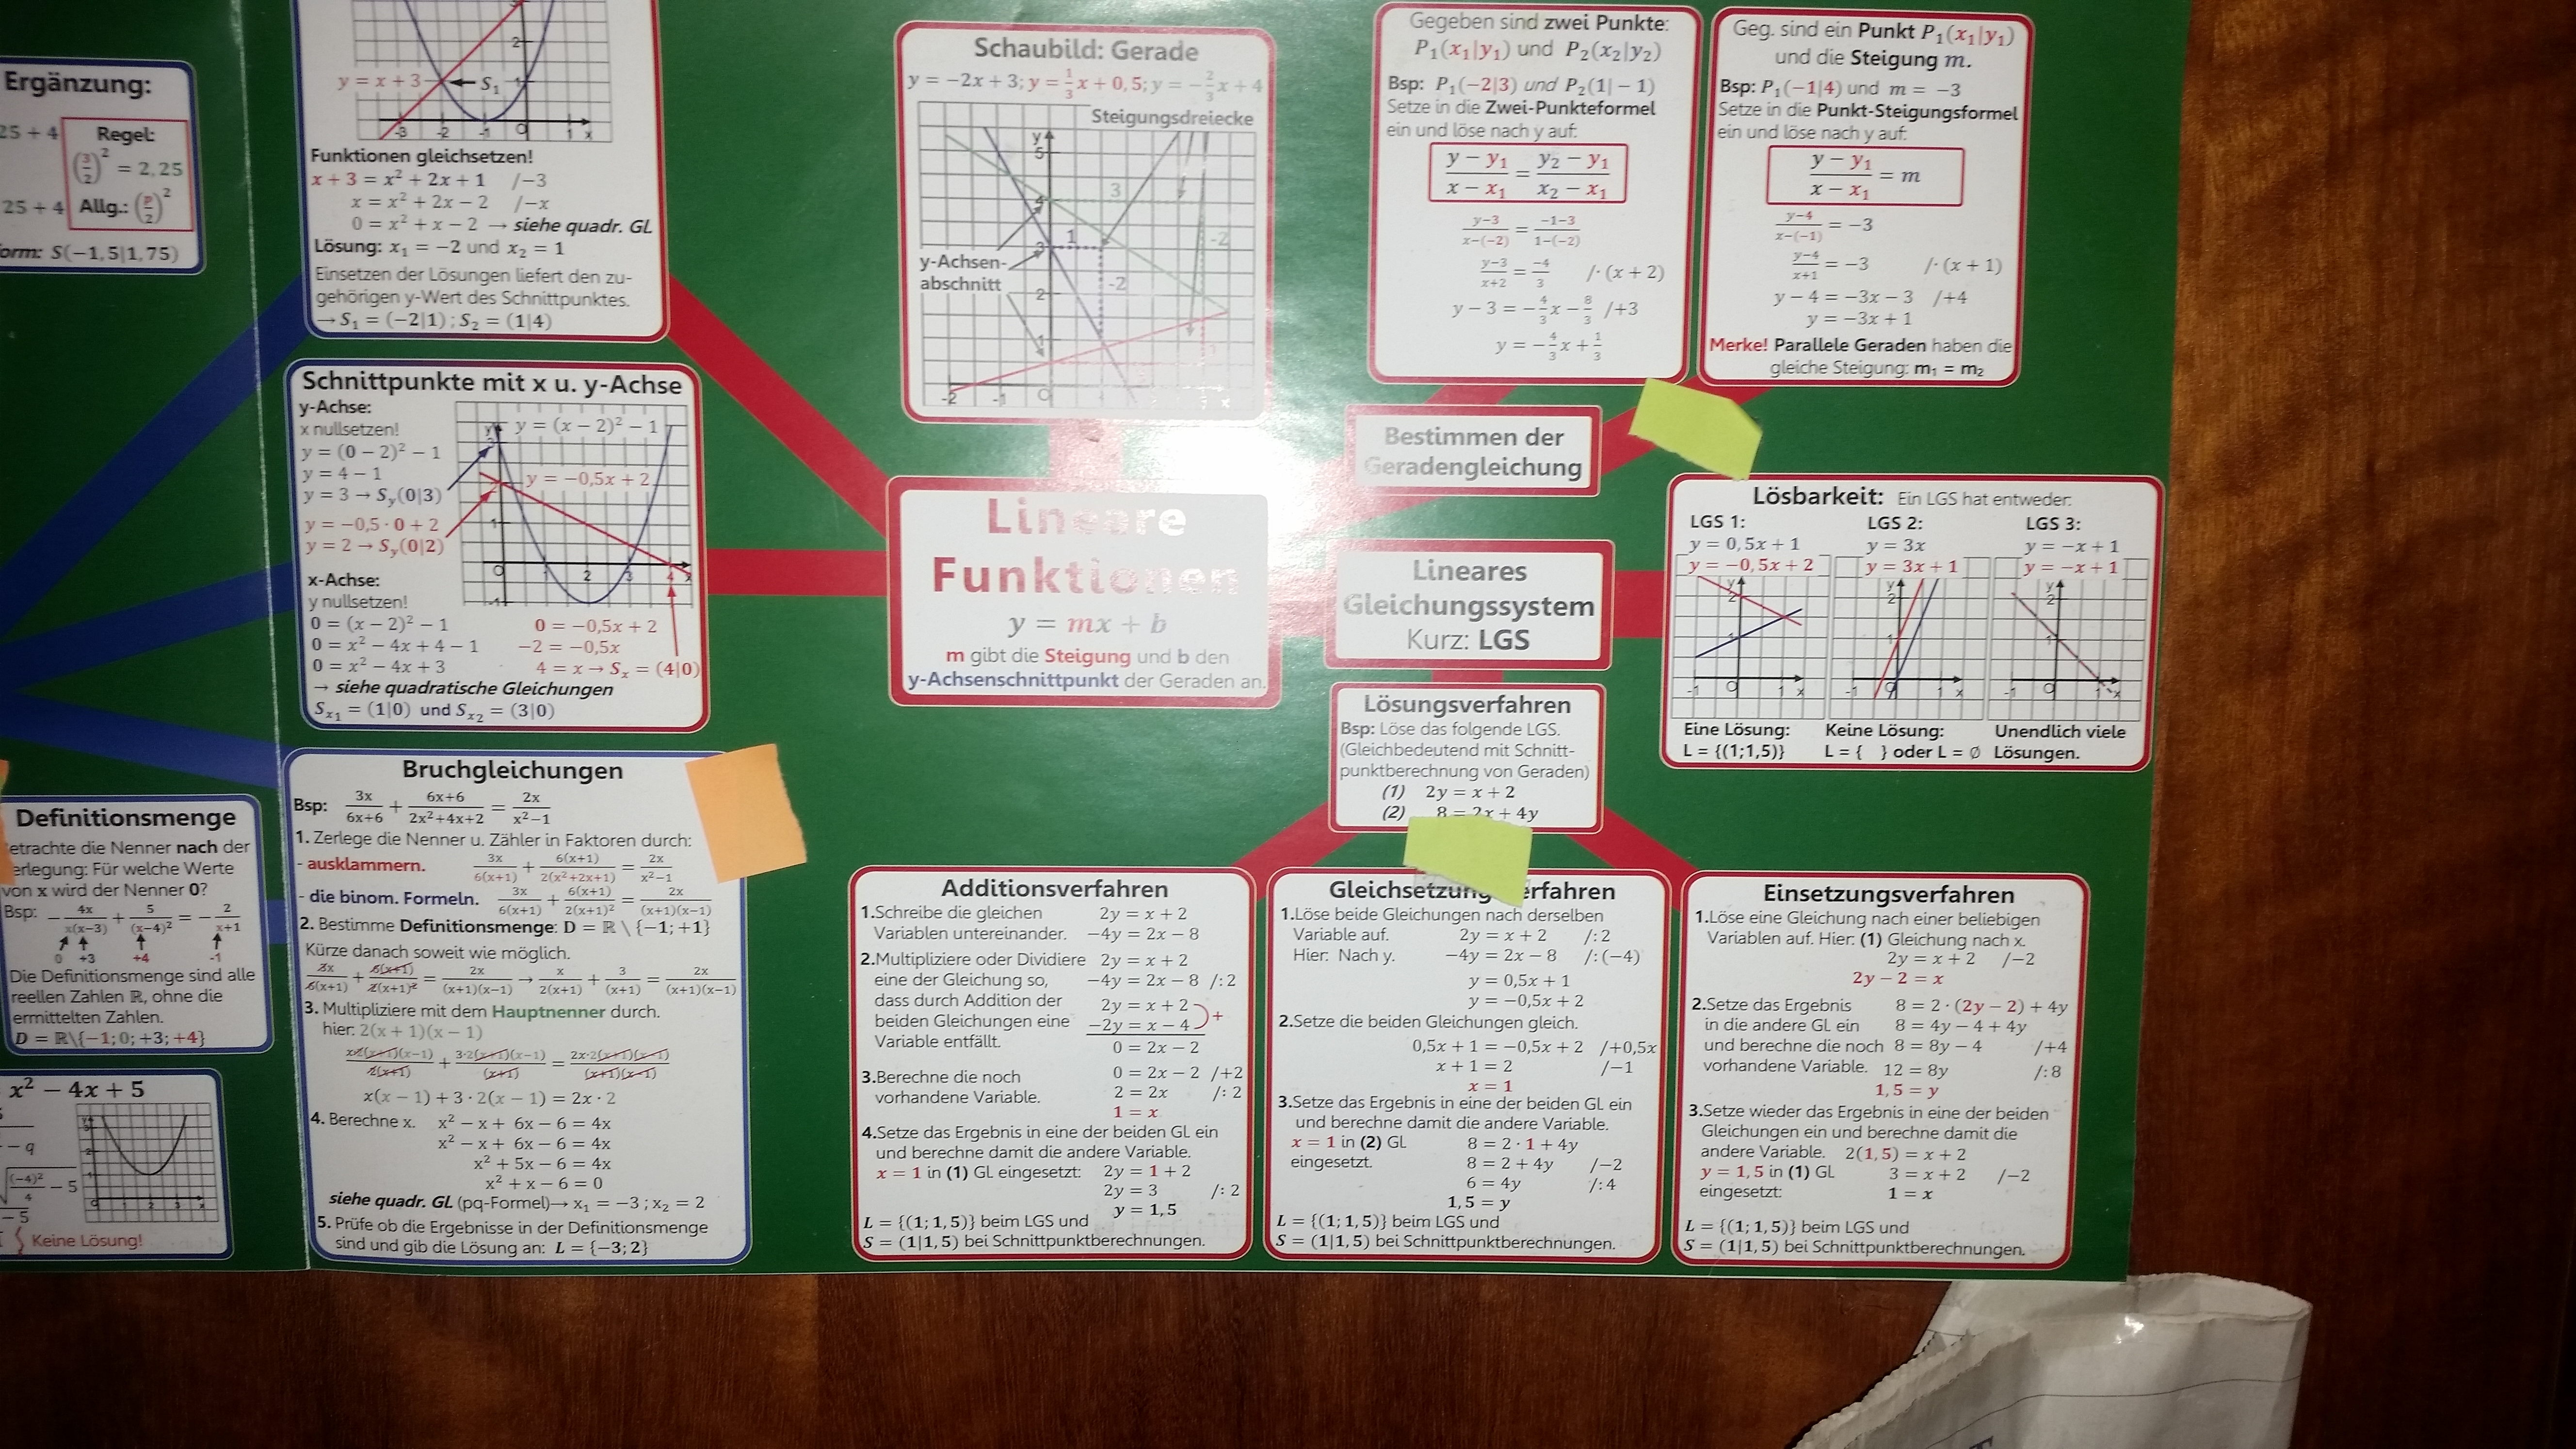 Ergänzung:
25 + 4
Regel:
(3/2)² = 2,25
25 + 4
Allg.: (p/2)²
orm: S(−1,5|1,75)
2
y = x + 3
S₁
1
-3 -2 -1 0 1 x
Funktionen gleichsetzen!
x + 3 = x² + 2x + 1 /−3
x = x² + 2x − 2 /−x
0 = x² + x − 2 → siehe quadr. GL
Lösung: x₁ = −2 und x₂ = 1
Einsetzen der Lösungen liefert den zu-
gehörigen y-Wert des Schnittpunktes.
→ S₁ = (−2|1) ; S₂ = (1|4)
Schnittpunkte mit x u. y-Achse
y-Achse:
x nullsetzen!
y = (0 − 2)² − 1
y = 4 − 1
y = 3 → Sy(0|3)
y = −0,5 · 0 + 2
y = 2 → Sy(0|2)
y = (x − 2)² − 1
y = −0,5x + 2
x-Achse:
y nullsetzen!
0 = (x − 2)² − 1
0 = x² − 4x + 4 − 1
0 = x² − 4x + 3
0 = −0,5x + 2
−2 = −0,5x
4 = x → Sx = (4|0)
→ siehe quadratische Gleichungen
Sx₁ = (1|0) und Sx₂ = (3|0)
Definitionsmenge
etrachte die Nenner nach der
erlegung: Für welche Werte
von x wird der Nenner 0?
Bsp: − 4x/x(x−3) + 5/(x−4)² = − 2/x+1
0 +3 +4 -1
Die Definitionsmenge sind alle
reellen Zahlen ℝ, ohne die
ermittelten Zahlen.
D = ℝ\{−1; 0; +3; +4}
x² − 4x + 5
− q
(−4)²/4 − 5
− 5
Keine Lösung!
Bruchgleichungen
Bsp: 3x/6x+6 + 6x+6/2x²+4x+2 = 2x/x²−1
1. Zerlege die Nenner u. Zähler in Faktoren durch:
- ausklammern. 3x/6(x+1) + 6(x+1)/2(x²+2x+1) = 2x/x²−1
- die binom. Formeln. 3x/6(x+1) + 6(x+1)/2(x+1)² = 2x/(x+1)(x−1)
2. Bestimme Definitionsmenge: D = ℝ \ {−1; +1}
Kürze danach soweit wie möglich.
3x/6(x+1) + 6(x+1)/2(x+1)² = 2x/(x+1)(x−1) → x/2(x+1) + 3/(x+1) = 2x/(x+1)(x−1)
3. Multipliziere mit dem Hauptnenner durch.
hier: 2(x + 1)(x − 1)
x·2(x+1)(x−1)/2(x+1) + 3·2(x+1)(x−1)/(x+1) = 2x·2(x+1)(x−1)/(x+1)(x−1)
x(x − 1) + 3 · 2(x − 1) = 2x · 2
4. Berechne x. x² − x + 6x − 6 = 4x
x² − x + 6x − 6 = 4x
x² + 5x − 6 = 4x
x² + x − 6 = 0
siehe quadr. GL (pq-Formel)→ x₁ = −3 ; x₂ = 2
5. Prüfe ob die Ergebnisse in der Definitionsmenge
sind und gib die Lösung an: L = {−3; 2}
Schaubild: Gerade
y = −2x + 3; y = 1/3x + 0,5; y = −2/3x + 4
Steigungsdreiecke
y
5
4
3
2
1
3
1
-2
-2
y-Achsen-
abschnitt
-2 -1 0
Lineare
Funktionen
y = mx + b
m gibt die Steigung und b den
y-Achsenschnittpunkt der Geraden an.
Gegeben sind zwei Punkte:
P₁(x₁|y₁) und P₂(x₂|y₂)
Bsp: P₁(−2|3) und P₂(1| − 1)
Setze in die Zwei-Punkteformel
ein und löse nach y auf:
y − y₁/x − x₁ = y₂ − y₁/x₂ − x₁
y−3/x−(−2) = −1−3/1−(−2)
y−3/x+2 = −4/3 /· (x + 2)
y − 3 = −4/3x − 8/3 /+3
y = −4/3x + 1/3
Geg. sind ein Punkt P₁(x₁|y₁)
und die Steigung m.
Bsp: P₁(−1|4) und m = −3
Setze in die Punkt-Steigungsformel
ein und löse nach y auf:
y − y₁/x − x₁ = m
y−4/x−(−1) = −3
y−4/x+1 = −3 /· (x + 1)
y − 4 = −3x − 3 /+4
y = −3x + 1
Merke! Parallele Geraden haben die
gleiche Steigung: m₁ = m₂
Bestimmen der
Geradengleichung
Lineares
Gleichungssystem
Kurz: LGS
Lösbarkeit: Ein LGS hat entweder:
LGS 1: LGS 2: LGS 3:
y = 0,5x + 1 y = 3x y = −x + 1
y = −0,5x + 2 y = 3x + 1 y = −x + 1
Eine Lösung: Keine Lösung: Unendlich viele
L = {(1;1,5)} L = { } oder L = ∅ Lösungen.
Lösungsverfahren
Bsp: Löse das folgende LGS.
(Gleichbedeutend mit Schnitt-
punktberechnung von Geraden)
(1) 2y = x + 2
(2) 8 = 2x + 4y
Additionsverfahren
1.Schreibe die gleichen 2y = x + 2
Variablen untereinander. −4y = 2x − 8
2.Multipliziere oder Dividiere 2y = x + 2
eine der Gleichung so, −4y = 2x − 8 /: 2
dass durch Addition der 2y = x + 2
beiden Gleichungen eine −2y = x − 4 +
Variable entfällt. 0 = 2x − 2
3.Berechne die noch 0 = 2x − 2 /+2
vorhandene Variable. 2 = 2x /: 2
1 = x
4.Setze das Ergebnis in eine der beiden GL ein
und berechne damit die andere Variable.
x = 1 in (1) GL eingesetzt: 2y = 1 + 2
2y = 3 /: 2
y = 1,5
L = {(1; 1,5)} beim LGS und
S = (1|1,5) bei Schnittpunktberechnungen.
Gleichsetzung erfahren
1.Löse beide Gleichungen nach derselben
Variable auf. 2y = x + 2 /: 2
Hier: Nach y. −4y = 2x − 8 /: (−4)
y = 0,5x + 1
y = −0,5x + 2
2.Setze die beiden Gleichungen gleich.
0,5x + 1 = −0,5x + 2 /+0,5x
x + 1 = 2 /−1
x = 1
3.Setze das Ergebnis in eine der beiden GL ein
und berechne damit die andere Variable.
x = 1 in (2) GL 8 = 2 · 1 + 4y
eingesetzt. 8 = 2 + 4y /−2
6 = 4y /: 4
1,5 = y
L = {(1; 1,5)} beim LGS und
S = (1|1,5) bei Schnittpunktberechnungen.
Einsetzungsverfahren
1.Löse eine Gleichung nach einer beliebigen
Variablen auf. Hier: (1) Gleichung nach x.
2y = x + 2 /−2
2y − 2 = x
2.Setze das Ergebnis 8 = 2 · (2y − 2) + 4y
in die andere GL ein 8 = 4y − 4 + 4y
und berechne die noch 8 = 8y − 4 /+4
vorhandene Variable. 12 = 8y /: 8
1,5 = y
3.Setze wieder das Ergebnis in eine der beiden
Gleichungen ein und berechne damit die
andere Variable. 2(1,5) = x + 2
y = 1,5 in (1) GL 3 = x + 2 /−2
eingesetzt: 1 = x
L = {(1; 1,5)} beim LGS und
S = (1|1,5) bei Schnittpunktberechnungen.